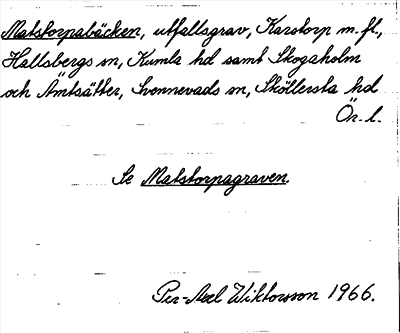 Matstorpabäcken, utfallsgrav, Karstorp m.fl.,
Hallsbergs sn, Kumla hd samt Skogaholm
och Åmtsätter, Svennevads sn, Sköllersta hd
Ör. l.
Se Matstorpagraven.
Per-Axel Wiktorsson 1966.